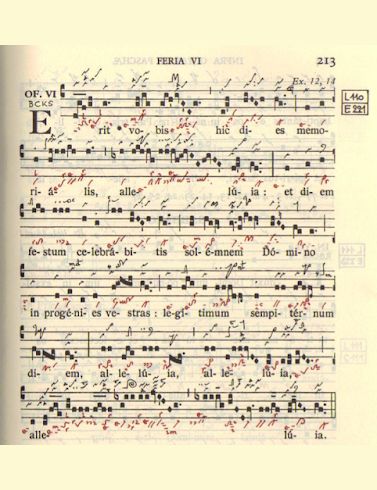 FERIA VI 213
Ex. 12, 14
OF. VI
BCKS
L 110
E 221
E rit vo- bis hic di- es memo-
ri- á- lis, alle- lú- ia : et di- em
fe- stum ce-lebrá- bi- tis sol- é-mnem Dó- mi- no
in progé-ni- es ve- stras : le-gí- timum sempi- tér- num
di- em, al- le- lú- ia, al- le- lú- ia,
alle- lú- ia.